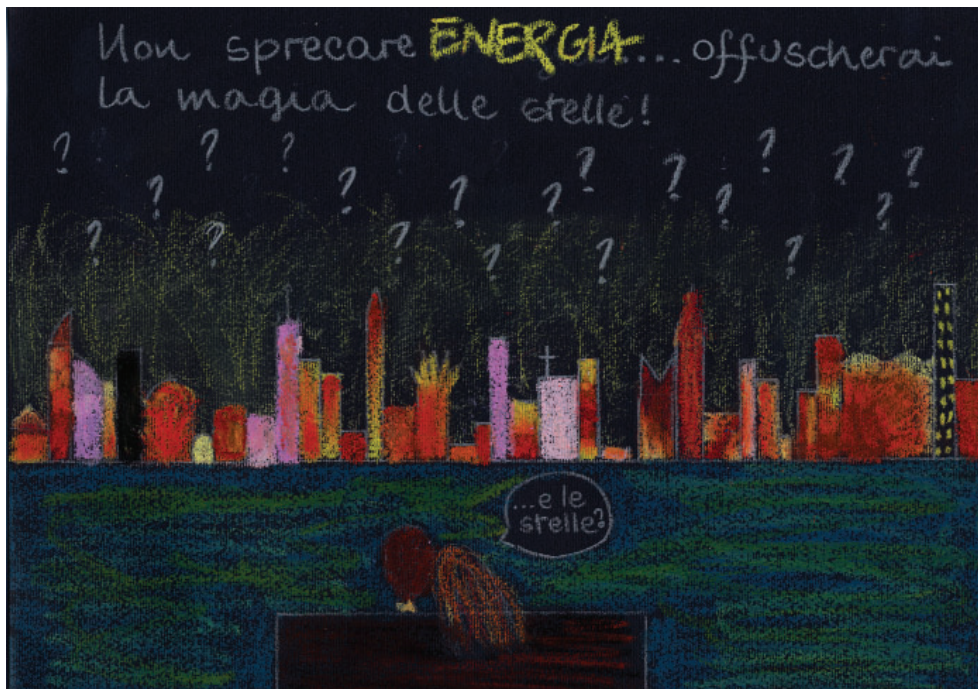 Non sprecare ENERGIA.... offuscherai
la magia delle stelle!
? ? ? ? ? ? ? ? ?
? ? ? ? ? ?
? ? ? ? ? ?
...e le
stelle?